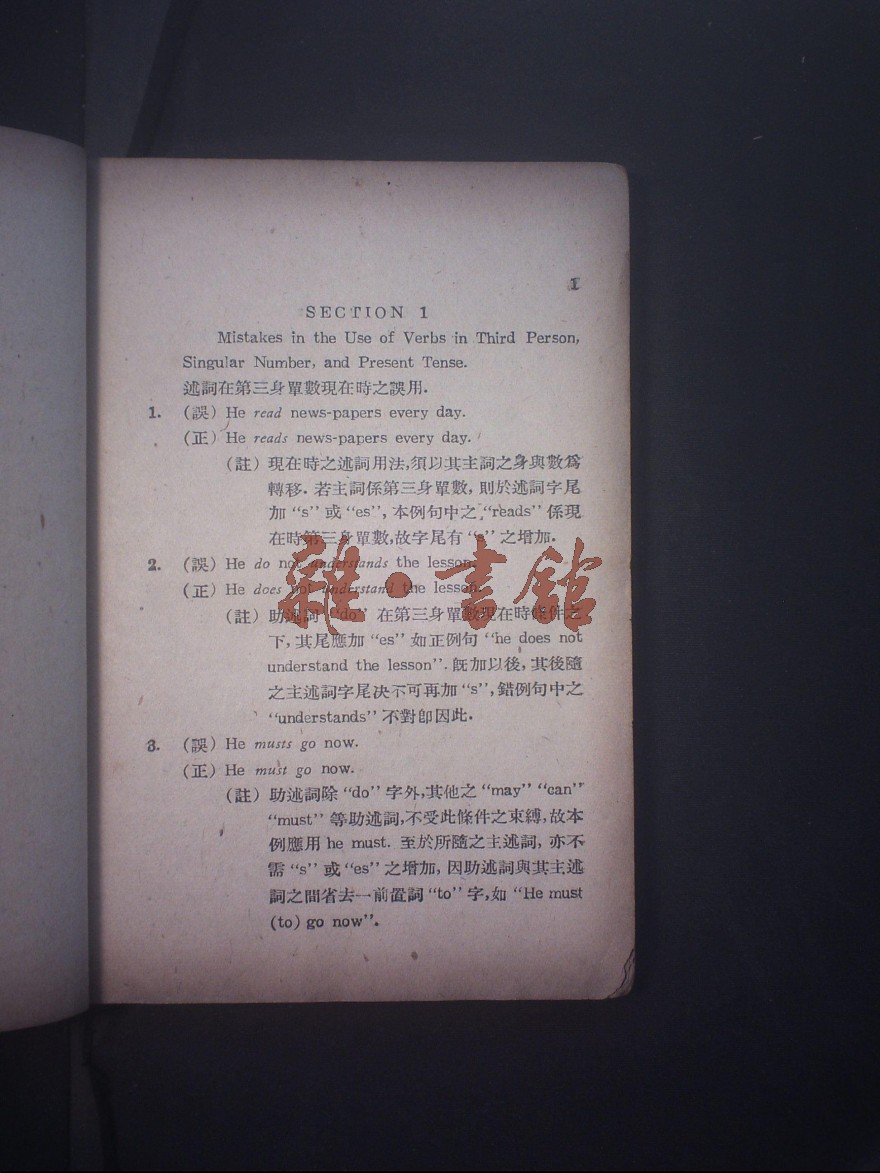 1
SECTION 1
Mistakes in the Use of Verbs in Third Person,
Singular Number, and Present Tense.
述詞在第三身單數現在時之誤用.
1. (誤) He read news-papers every day.
(正) He reads news-papers every day.
(註) 現在時之述詞用法,須以其主詞之身與數爲
轉移. 若主詞係第三身單數, 則於述詞字尾
加 “s” 或 “es”, 本例句中之 “reads” 係現
在時第三身單數,故字尾有 “s” 之增加.
2. (誤) He do not understands the lesson.
(正) He does not understand the lesson.
(註) 助述詞 “do” 在第三身單數現在時條件之
下, 其尾應加 “es” 如正例句 “he does not
understand the lesson”. 旣加以後, 其後隨
之主述詞字尾决不可再加 “s”, 錯例句中之
“understands” 不對卽因此.
3. (誤) He musts go now.
(正) He must go now.
(註) 助述詞除 “do” 字外,其他之 “may” “can”
“must” 等助述詞,不受此條件之束縛,故本
例應用 he must. 至於所隨之主述詞, 亦不
需 “s” 或 “es” 之增加, 因助述詞與其主述
詞之間省去一前置詞 “to” 字,如 “He must
(to) go now”.
雜·書館